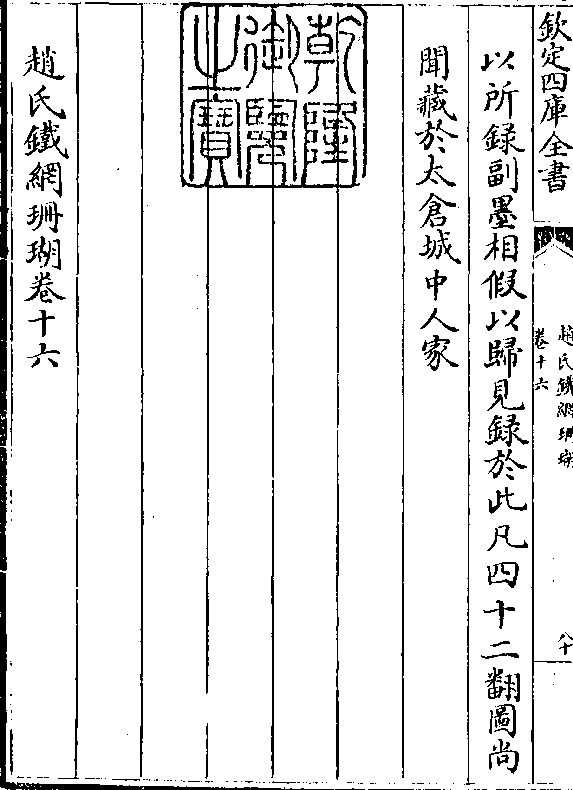 欽定四庫全書
趙氏鐵網珊瑚
卷十六
八十
以所録副墨相假以歸見録於此凡四十二翻圖尚
聞藏於太倉城中人家
乾隆
御覽
之寶
趙氏鐵網珊瑚卷十六